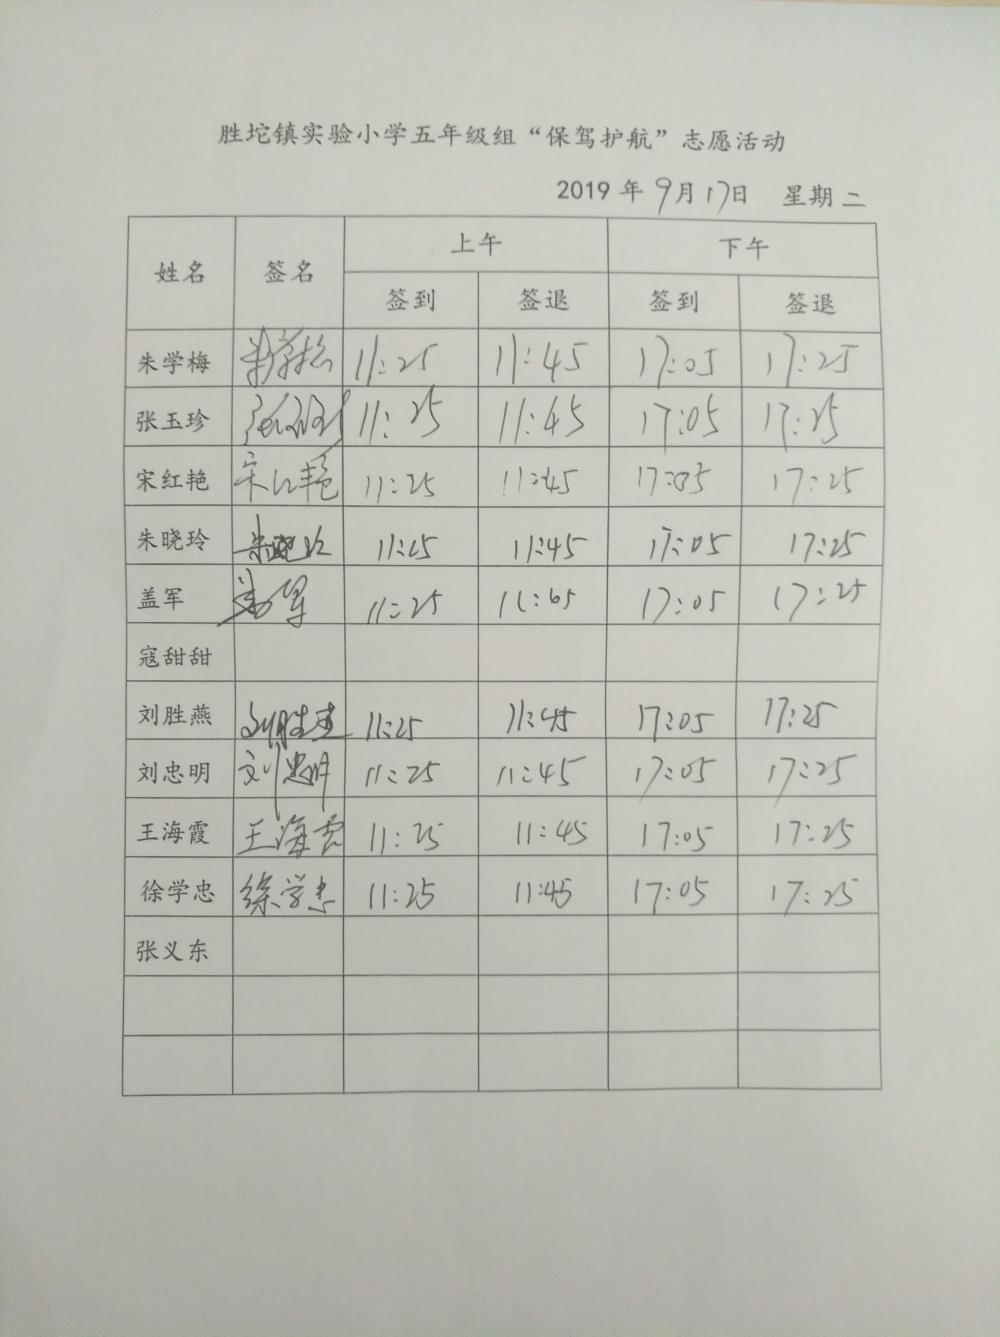 胜坨镇实验小学五年级组“保驾护航”志愿活动
2019 年 9月17日 星期 二
姓名 签名 上午 下午
签到 签退 签到 签退
朱学梅 朱学梅 11:25 11:45 17:05 17:25
张玉珍 11:25 11:45 17:05 17:25
宋红艳 宋红艳 11:25 11:45 17:05 17:25
朱晓玲 朱晓玲 11:25 11:45 17:05 17:25
盖军 盖军 11:25 17:05 17:25
寇甜甜
刘胜燕 刘胜燕 11:25 11:45 17:05 17:25
刘忠明 刘忠明 11:25 11:45 17:05 17:25
王海霞 王海霞 11:25 11:45 17:05 17:25
徐学忠 徐学忠 11:25 11:45 17:05 17:25
张义东